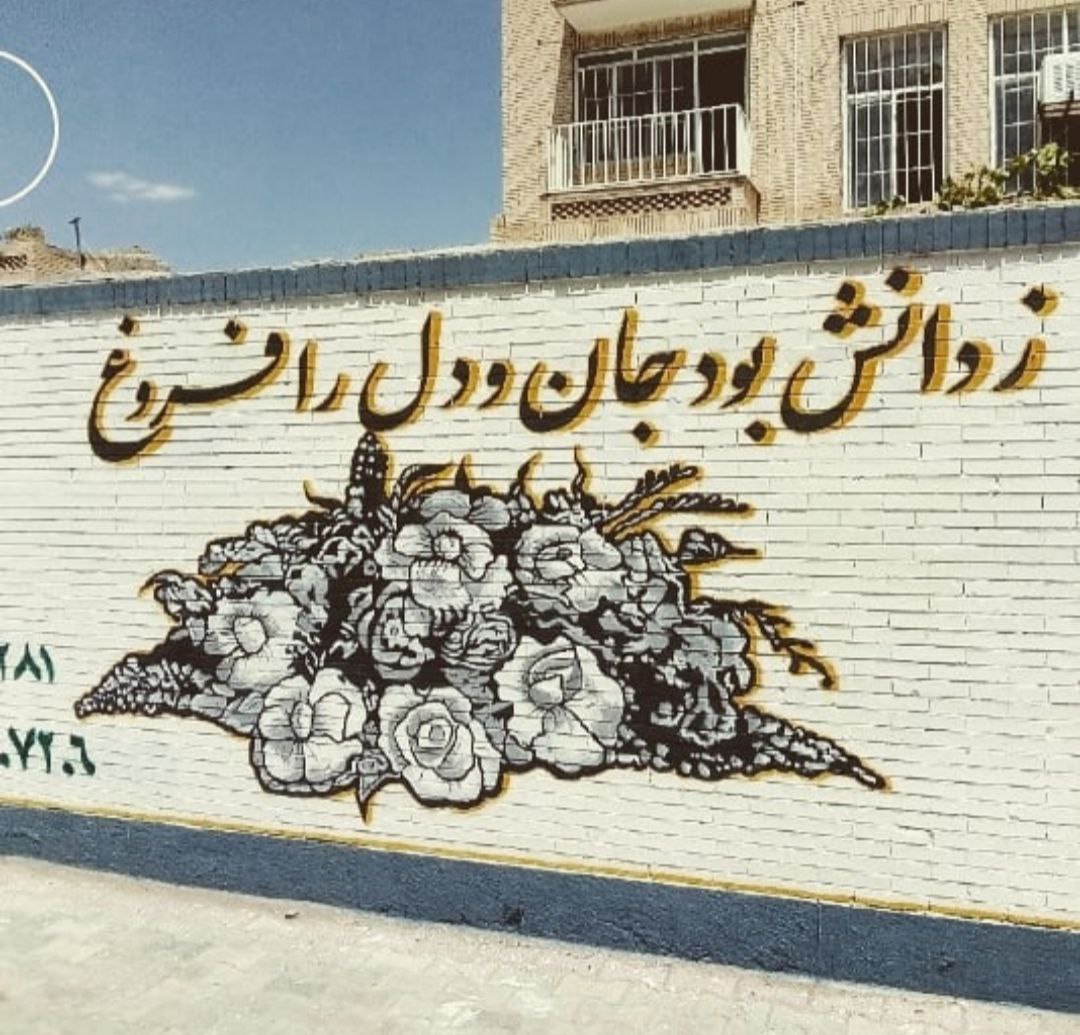 ز دانش بود جان و دل را فروغ
۲۸۱
۰۷۲۰۶